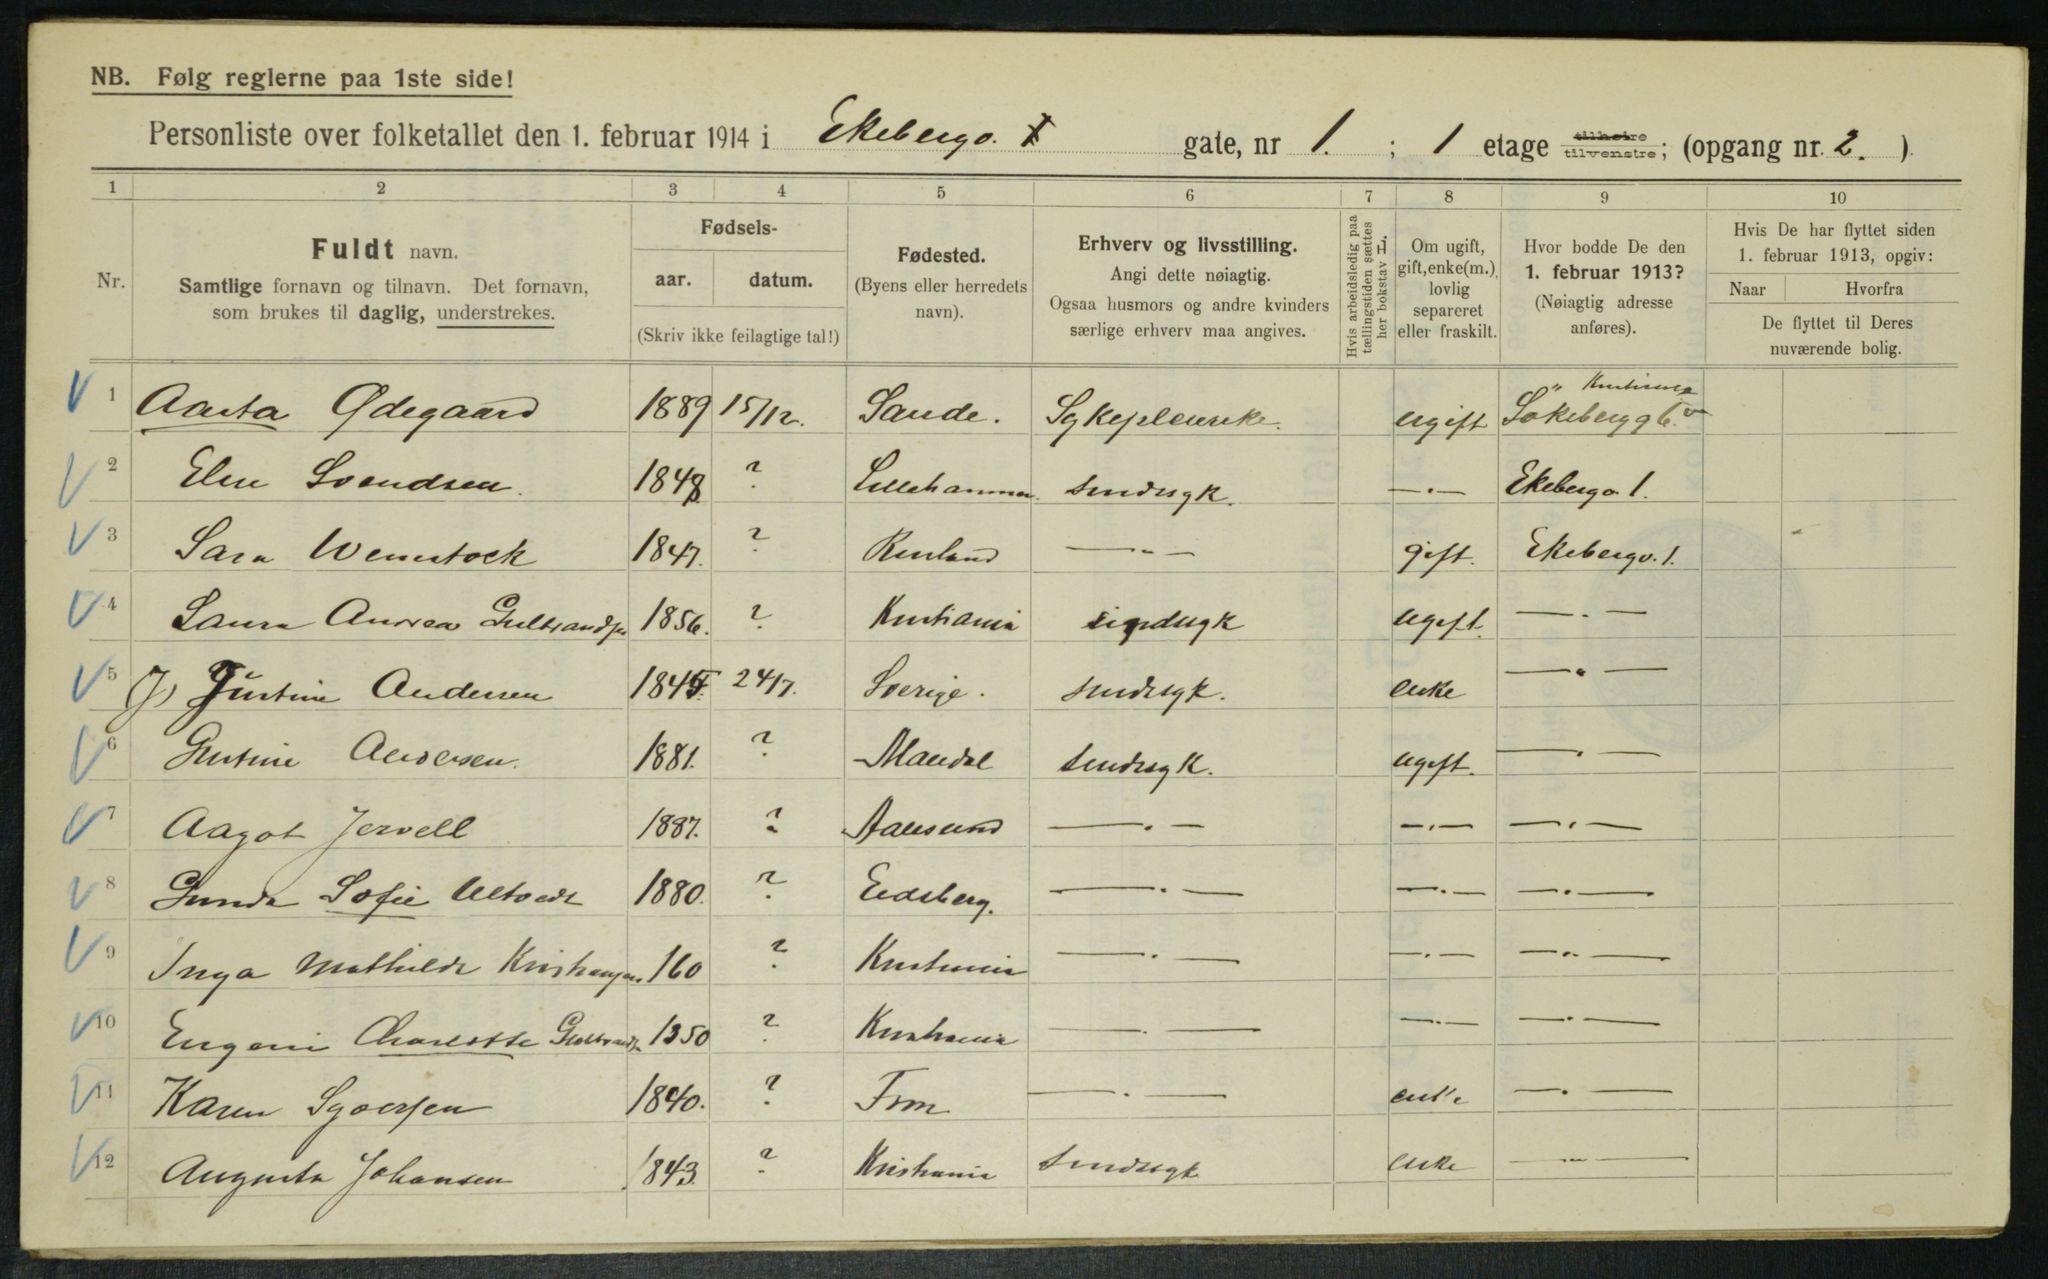 NB. Følg reglerne paa 1ste side!
Personliste over folketallet den 1. februar 1914 i Ekebergv. gate, nr 1. ; 1 etage tilhøire tilvenstre; (opgang nr. 2. ).
1 2 3 4 5 6 7 8 9 10
Nr.
Fuldt navn.
Samtlige fornavn og tilnavn. Det fornavn,
som brukes til daglig, understrekes.
Fødsels-
aar. datum.
(Skriv ikke feilagtige tal!)
Fødested.
(Byens eller herredets
navn).
Erhverv og livsstilling.
Angi dette nøiagtig.
Ogsaa husmors og andre kvinders
særlige erhverv maa angives.
Hvis arbeidsledig paa
tællingstiden sættes
her bokstav L.
Om ugift,
gift, enke(m.),
lovlig
separeret
eller fraskilt.
Hvor bodde De den
1. februar 1913?
(Nøiagtig adresse
anføres).
Hvis De har flyttet siden
1. februar 1913, opgiv:
Naar Hvorfra
De flyttet til Deres
nuværende bolig.
Kristiania
1 Aasta Ødegaard 1889 15/12. Sande. Sykepleierske. ugift
2 Elen Svendsen. 1848 ? Lillehammer. sindssyk. —„— Ekebergv. 1.
3 Sara Weinstock 1847. ? Rusland —„— gift. Ekebergv. 1.
4 Laura Andrea Gulbrandsen 1856. ? Kristiania sindssyk ugift. —„—
5 (J) Justine Andersen 1845. 24/7. Sverige. sindssyk. enke —„—
6 Gustine Andersen. 1881. ? Mandal sindssyk. ugift. —„—
7 Aagot Jervell 1887. ? Aalesund —„— —„— —„—
8 Gunda Sofie Ultvedt 1880. ? Eidsberg. —„— —„— —„—
9 Inga Mathilde Kristiansen. 160 ? Kristiania —„— —„— —„—
10 Eugenie Charlotte Gulbrandsen 1850 ? Kristiania —„— —„— —„—
11 Karen Syversen 1840. ? —„— enke —„—
12 Augusta Johansen 1843. ? Kristiania sindssyk enke —„—